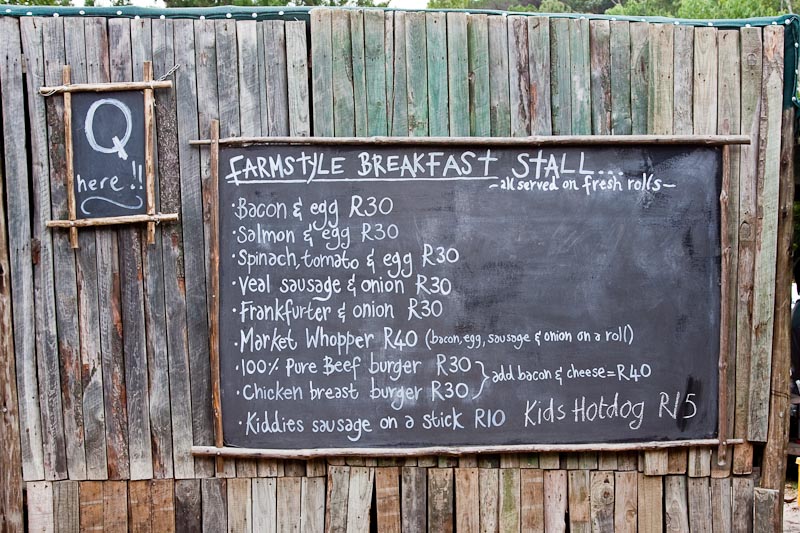 Q
here!!
FARMSTYLE BREAKFAST STALL...
- all served on fresh rolls -
· Bacon & egg R30
· Salmon & egg R30
· Spinach, tomato & egg R30
· Veal sausage & onion R30
· Frankfurter & onion R30
· Market Whopper R40 (bacon, egg, sausage & onion on a roll)
· 100% Pure Beef burger R30
· Chicken breast burger R30 } add bacon & cheese = R40
· Kiddies sausage on a stick R10 Kids Hotdog R15